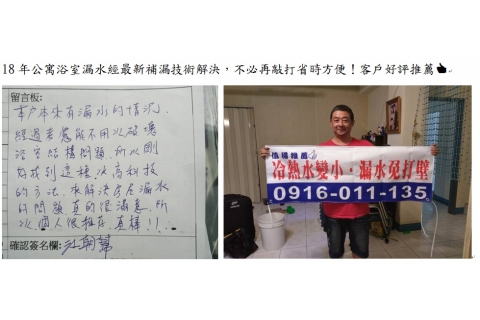 18 年公寓浴室漏水經最新補漏技術解決，不必再敲打省時方便！客戶好評推薦
留言板:
本戶本來有漏水的情況.
經過考慮能不用以破壞
浴室結構問題.所以剛
好找到這種高科技
的方法.來解決房屋漏水
的問題真的很滿意.所
以個人很推存.真棒!!.
確認簽名欄:
值得推薦
冷熱水變小‧漏水免打壁
0916-011-135